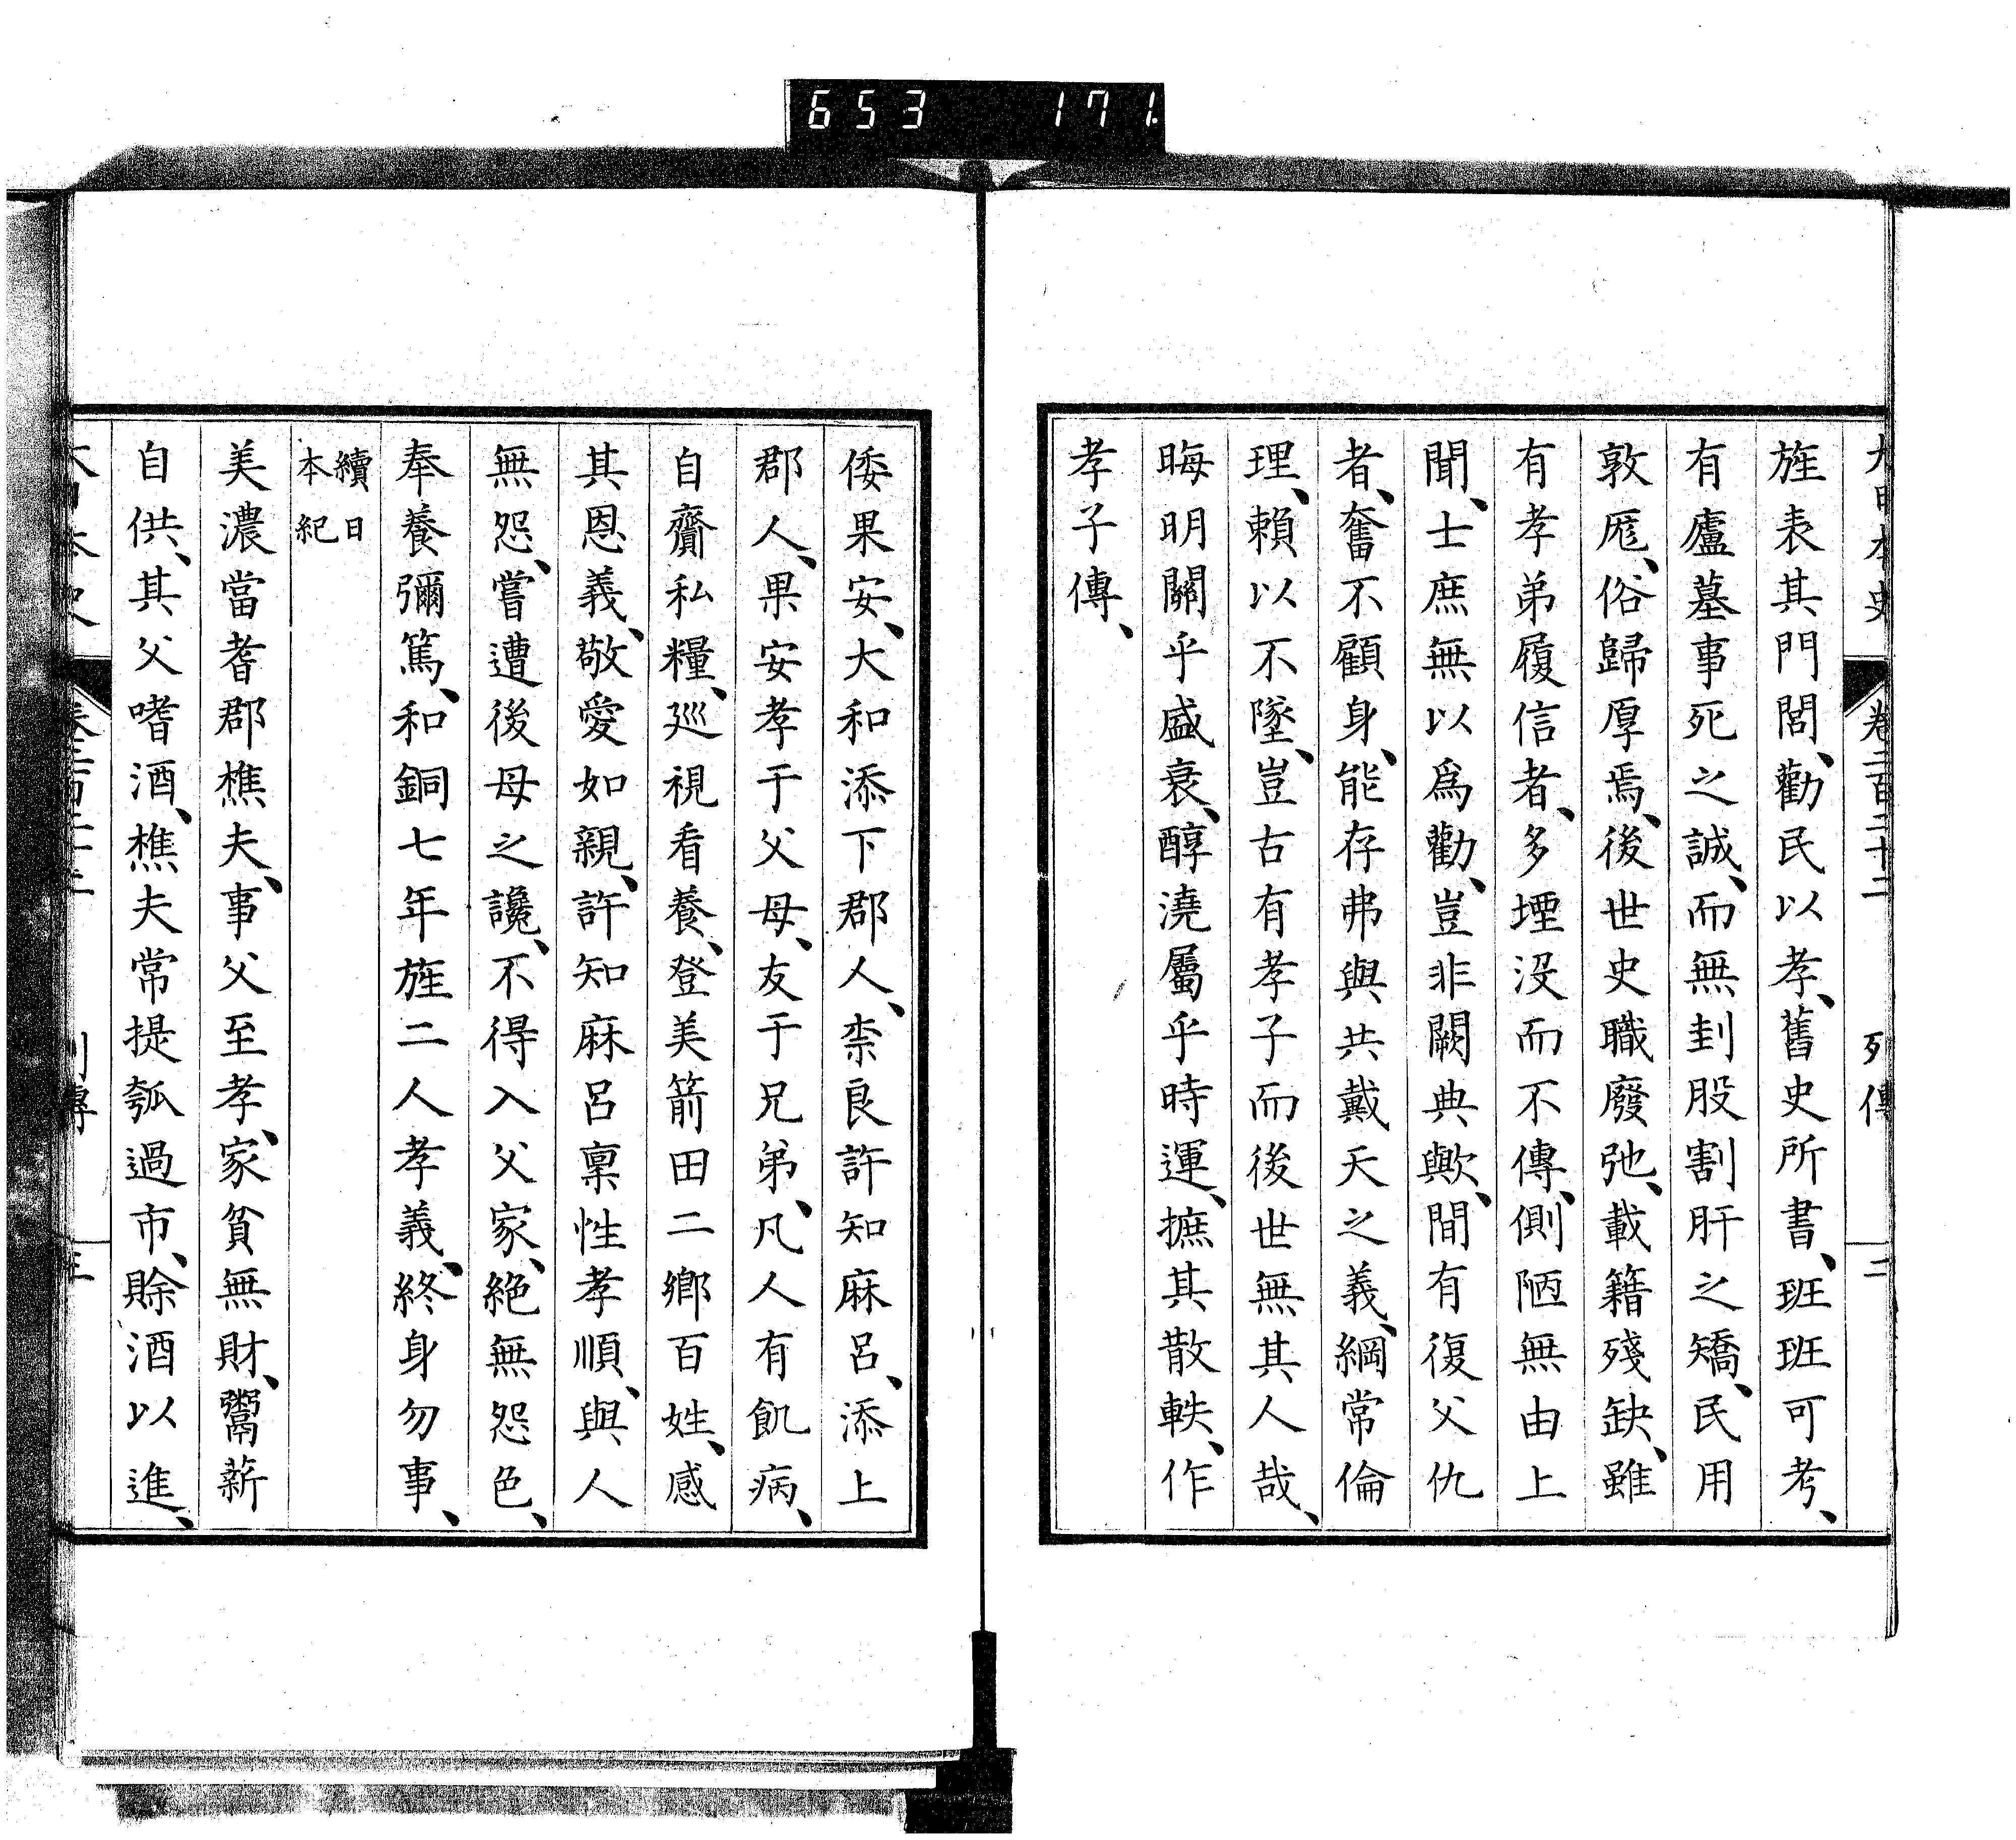 653 171.
大日本史 卷二百二十二 列傳 二
旌表其門閭、勸民以孝、舊史所書、班班可考、
有廬墓事死之誠、而無刲股割肝之矯、民用
敦厖、俗歸厚焉、後世史職廢弛、載籍殘缺、雖
有孝弟履信者、多堙沒而不傳、側陋無由上
聞、士庶無以爲勸、豈非闕典歟、間有復父仇
者、奮不顧身、能存弗與共戴天之義、綱常倫
理、賴以不墜、豈古有孝子而後世無其人哉、
晦明關乎盛衰、醇澆屬乎時運、摭其散軼、作
孝子傳、
倭果安、大和添下郡人、柰良許知麻呂、添上
郡人、果安孝于父母、友于兄弟、凡人有飢病、
自齎私糧、巡視看養、登美箭田二鄉百姓、感
其恩義、敬愛如親、許知麻呂稟性孝順、與人
無怨、嘗遭後母之讒、不得入父家、絕無怨色、
奉養彌篤、和銅七年旌二人孝義、終身勿事、
續日
本紀
美濃當耆郡樵夫、事父至孝、家貧無財、鬻薪
自供、其父嗜酒、樵夫常提瓠過市、賒酒以進、
大日本史 卷二百二十二 列傳 三